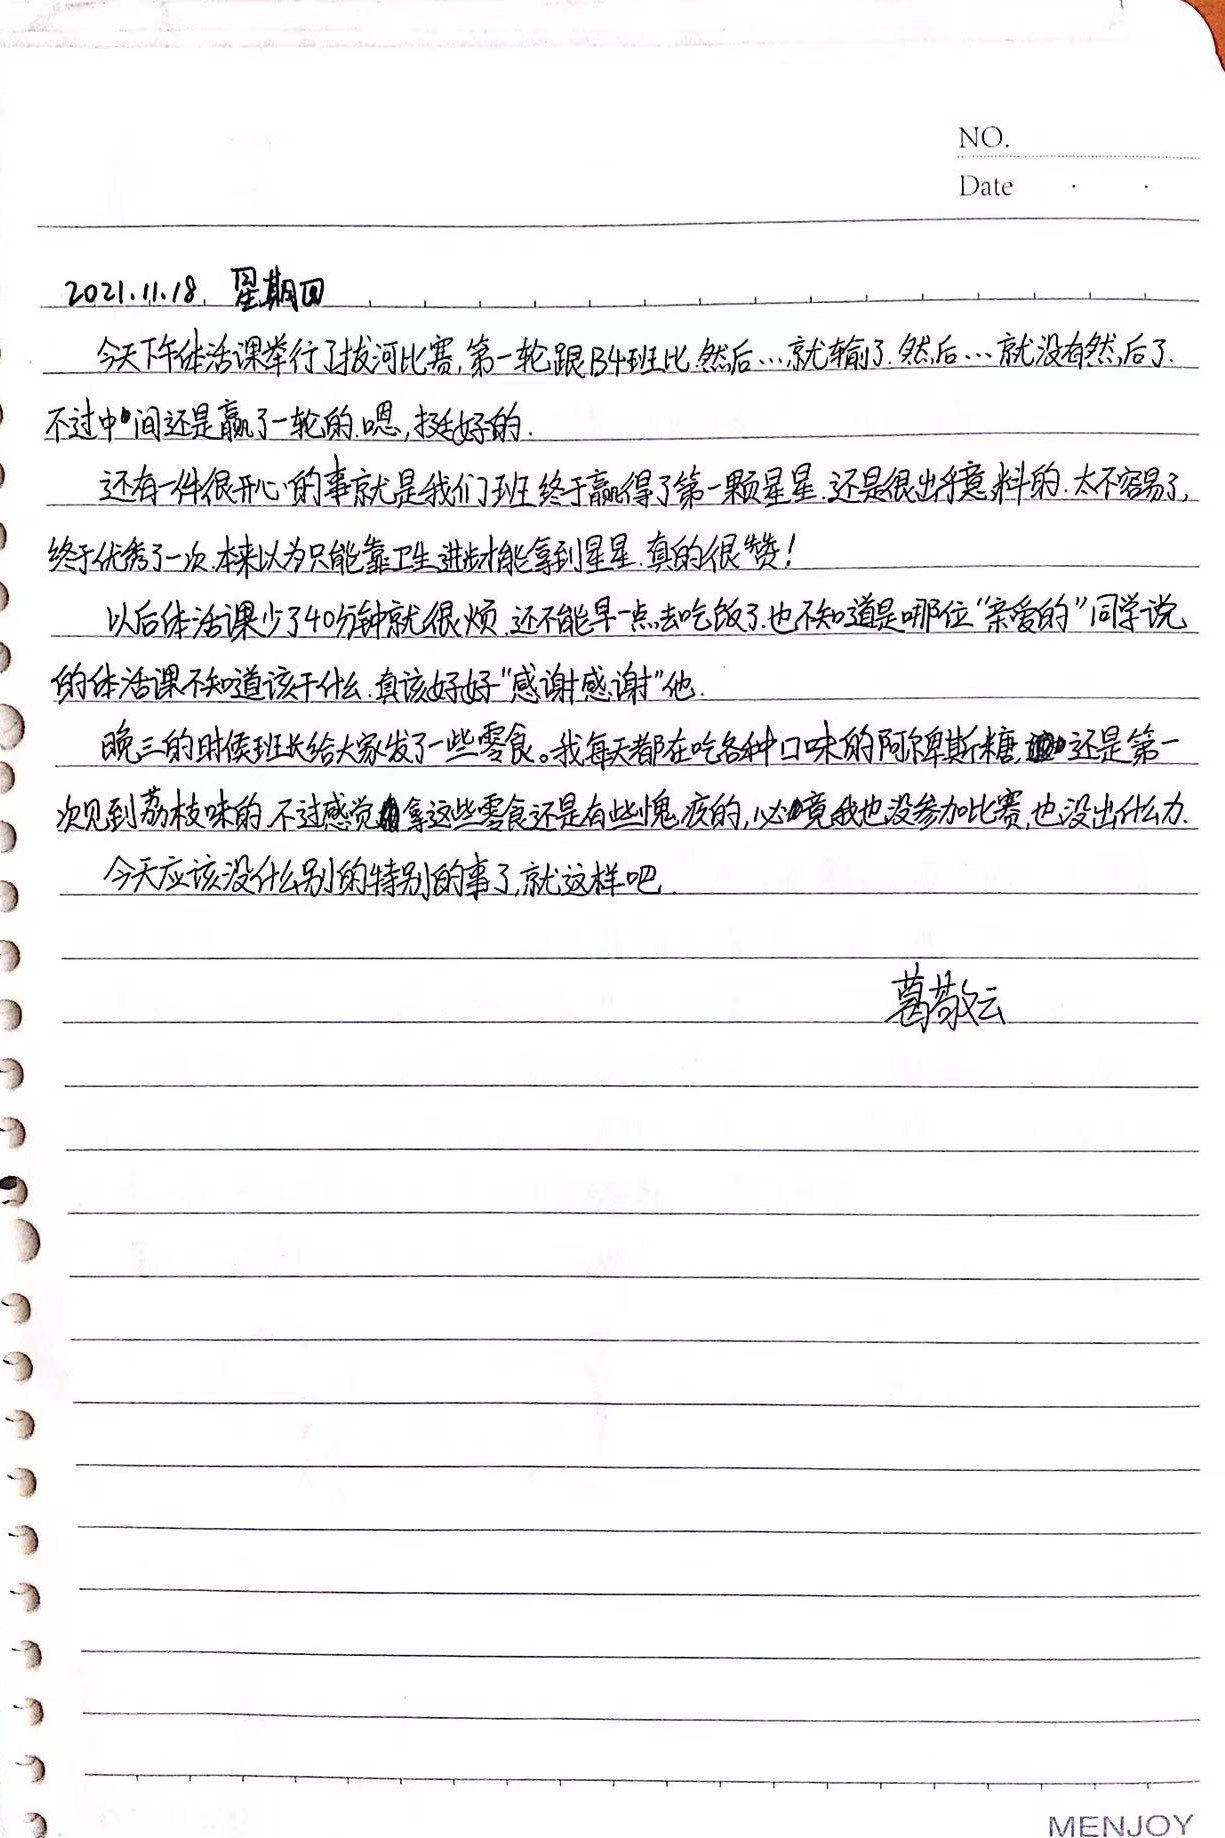 NO.
Date · ·
2021.11.18. 星期四
今天下午体活课举行了拔河比赛,第一轮跟B4班比.然后…就输了.然后…就没有然后了.
不过中间还是赢了一轮的.嗯,挺好的.
还有一件很开心的事就是我们班终于赢得了第一颗星星.还是很出乎意料的.太不容易了,
终于优秀了一次.本来以为只能靠卫生进步才能拿到星星.真的很赞!
以后体活课少了40分钟就很烦.还不能早一点去吃饭了.也不知道是哪位“亲爱的”同学说
的体活课不知道该干什么.真该好好“感谢感谢”他.
晚三的时候班长给大家发了一些零食。我每天都在吃各种口味的阿尔卑斯糖,还是第一
次见到荔枝味的.不过感觉拿这些零食还是有些愧疚的,必竟我也没参加比赛,也没出什么力.
今天应该没什么别的特别的事了,就这样吧.
葛敬云
MENJOY